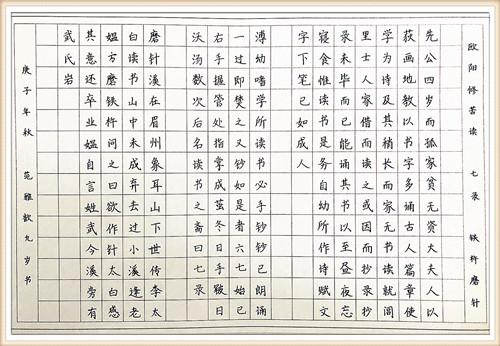 欧阳修苦读 七录 铁杵磨针
先公四岁而孤家贫无资太夫人以
荻画地教以书字多诵古人篇章使
学为诗及其稍长而家无书读就闾
里士人家借而读之或因而抄录抄
录未毕而已能诵其书以至昼夜忘
寝食惟读书是务自幼所作诗赋文
字下笔已如成人
溥幼嗜学所读书必手钞钞已朗诵
一过即焚之又钞如是者六七始已
右手握管处指掌成茧冬日手皲日
沃汤数次后名读书之斋曰七录
磨针溪在眉州象耳山下世传李太
白读书山中未成弃去过小溪逢老
媪方磨铁杵问之曰欲作针太白感
其意还卒业媪自言姓武今溪旁有
武氏岩
庚子年秋 范雅歆九岁书